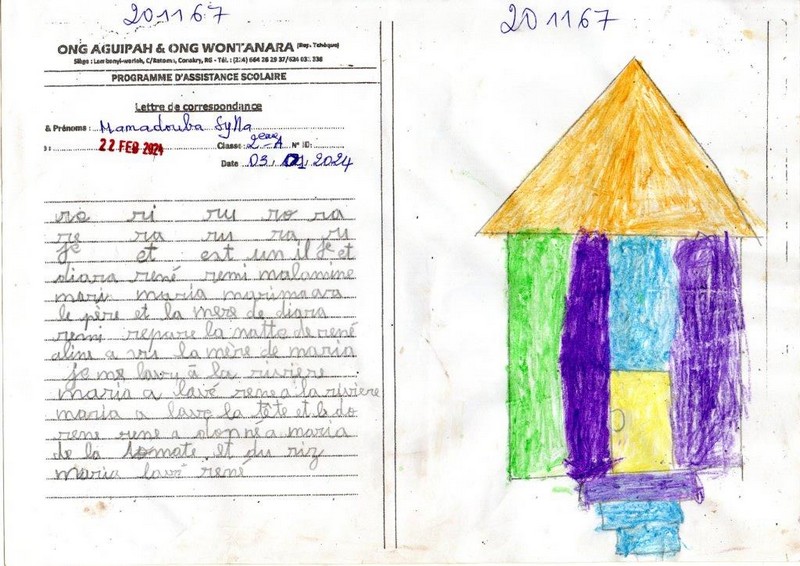 201167
ONG AGUIPAH & ONG WONTANARA (Rep. Tchèque)
Siège : Lambanyi-wariah, C/Ratoma, Conakry, RG - Tél. : (224) 664 26 29 37/624 03 338
PROGRAMME D'ASSISTANCE SCOLAIRE
Lettre de correspondance
& Prénoms : Mamadouba Sylla
22 FEB 2024 Classe : 2eme A N° ID:
Date 03 01 2024
re ri ru ro ra
re ra ru ra ru
je et est un il je et
diara rené remi malamine
mari maria marimaara
le père et la mère de diara
remi repare la natte de rené
aline a vu la mère de maria
je me lave à la rivière
maria a lavé rene a la riviere
maria a lave la tête et le do
rene rene a donné a maria
de la tomate et du riz
maria lavé rené
201167